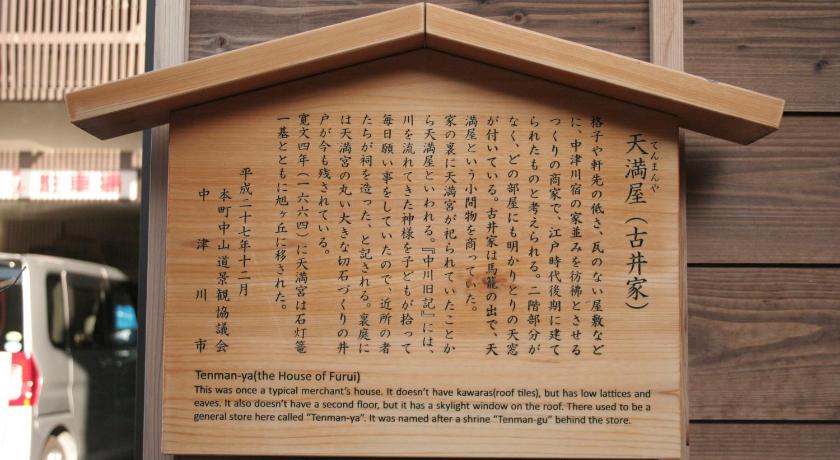 てんまんや
天満屋（古井家）
格子や軒先の低さ、瓦のない屋敷など
に、中津川宿の家並みを彷彿とさせる
つくりの商家で、江戸時代後期に建て
られたものと考えられる。二階部分が
なく、どの部屋にも明かりとりの天窓
が付いている。古井家は馬籠の出で、天
満屋という小間物を商っていた。
家の裏に天満宮が祀られていたことか
ら天満屋といわれる。『中川旧記』には、
川を流れてきた神様を子どもが拾って
毎日願い事をしていたので、近所の者
たちが祠を造った、と記される。裏庭に
は天満宮の丸い大きな切石づくりの井
戸が今も残されている。
寛文四年（一六六四）に天満宮は石灯籠
一基とともに旭ヶ丘に移された。
平成二十七年十二月
本町中山道景観協議会
中津川市
Tenman-ya(the House of Furui)
This was once a typical merchant's house. It doesn't have kawaras(roof tiles), but has low lattices and
eaves. It also doesn't have a second floor, but it has a skylight window on the roof. There used to be a
general store here called "Tenman-ya". It was named after a shrine "Tenman-gu" behind the store.